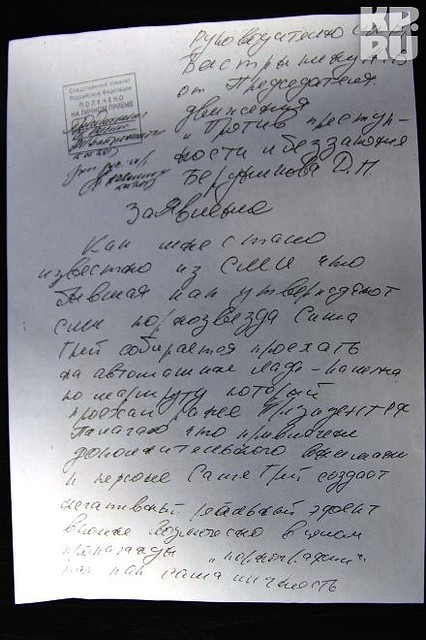 KP.RU
Руководителю
Быстрыкину
Следственный комитет
Российской Федерации
ПОЛУЧЕНО
НА ЛИЧНОМ ПРИЕМЕ
от Председателя
движения
"Против преступ-
ности и беззакония
Бердникова Д.Н
Заявление
Как мне стало
известно из СМИ что
бывшая как утверждают
сми порнозвезда Саша
Грей собирается проехать
на автомашине лада-калина
по маршруту который
проехал ранее Президент РФ
Полагаю что привлечение
дополнительного внимания
к персоне Саши Грей создает
негативный реальный эффект
вполне возможно в плане
пропаганды "порнографии"
так как сама личность